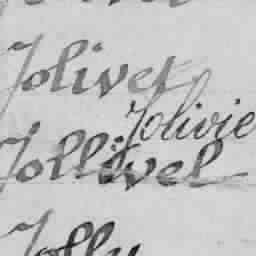 Jolivet
Jolivie
Jollivel
Jolly